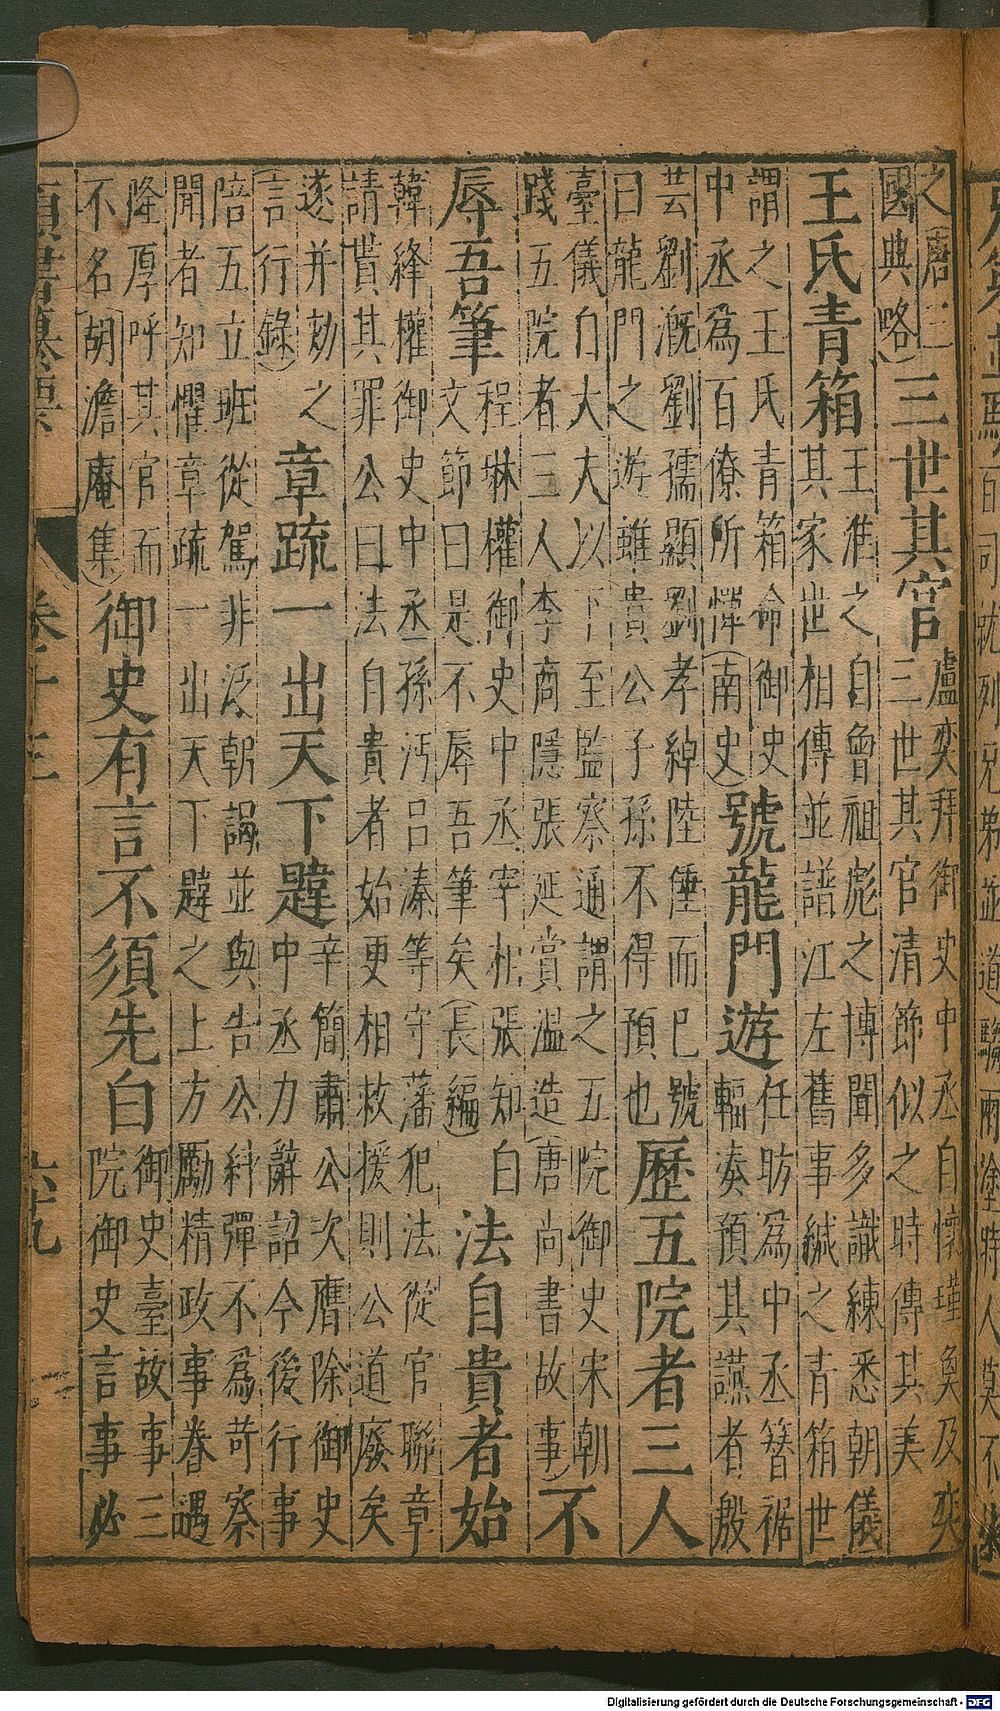 之(唐三
國典略)
三世其官
盧奕拜御史中丞自懷瑾奐及奕
三世其官清節似之時傳其美
王氏青箱
王准之自曾祖彪之博聞多識練悉朝儀
其家世相傳並諳江左舊事緘之青箱世
謂之王氏青箱命御史
中丞為百僚所憚(南史)
號龍門遊
任昉為中丞簪裾
輻湊預其讌者殷
芸劉溉劉孺顯劉孝綽陸倕而已號
曰龍門之遊雖貴公子孫不得預也
歷五院者三人
臺儀自大夫以下至監察通謂之五院御史宋朝
踐五院者三人李商隱張延賞溫造(唐尚書故事)
不
辱吾筆
程琳權御史中丞宰相張知白
文節曰是不辱吾筆矣(長編)
法自貴者始
韓絳權御史中丞孫沔呂溱等守藩犯法從官聯章
請貰其罪公曰法自貴者始更相救援則公道廢矣
遂并劾之
(言行錄)
章疏一出天下韙
辛簡肅公次膺除御史
中丞力辭詔今後行事
陪五立班從駕非泛朝謁並與告公糾彈不為苛察
聞者知懼章疏一出天下韙之上方勵精政事眷遇
隆厚呼其官而
不名(胡澹庵集)
御史有言不須先白
御史臺故事三
院御史言事必
卷十三
六十九
Digitalisierung gefördert durch die Deutsche Forschungsgemeinschaft - DFG